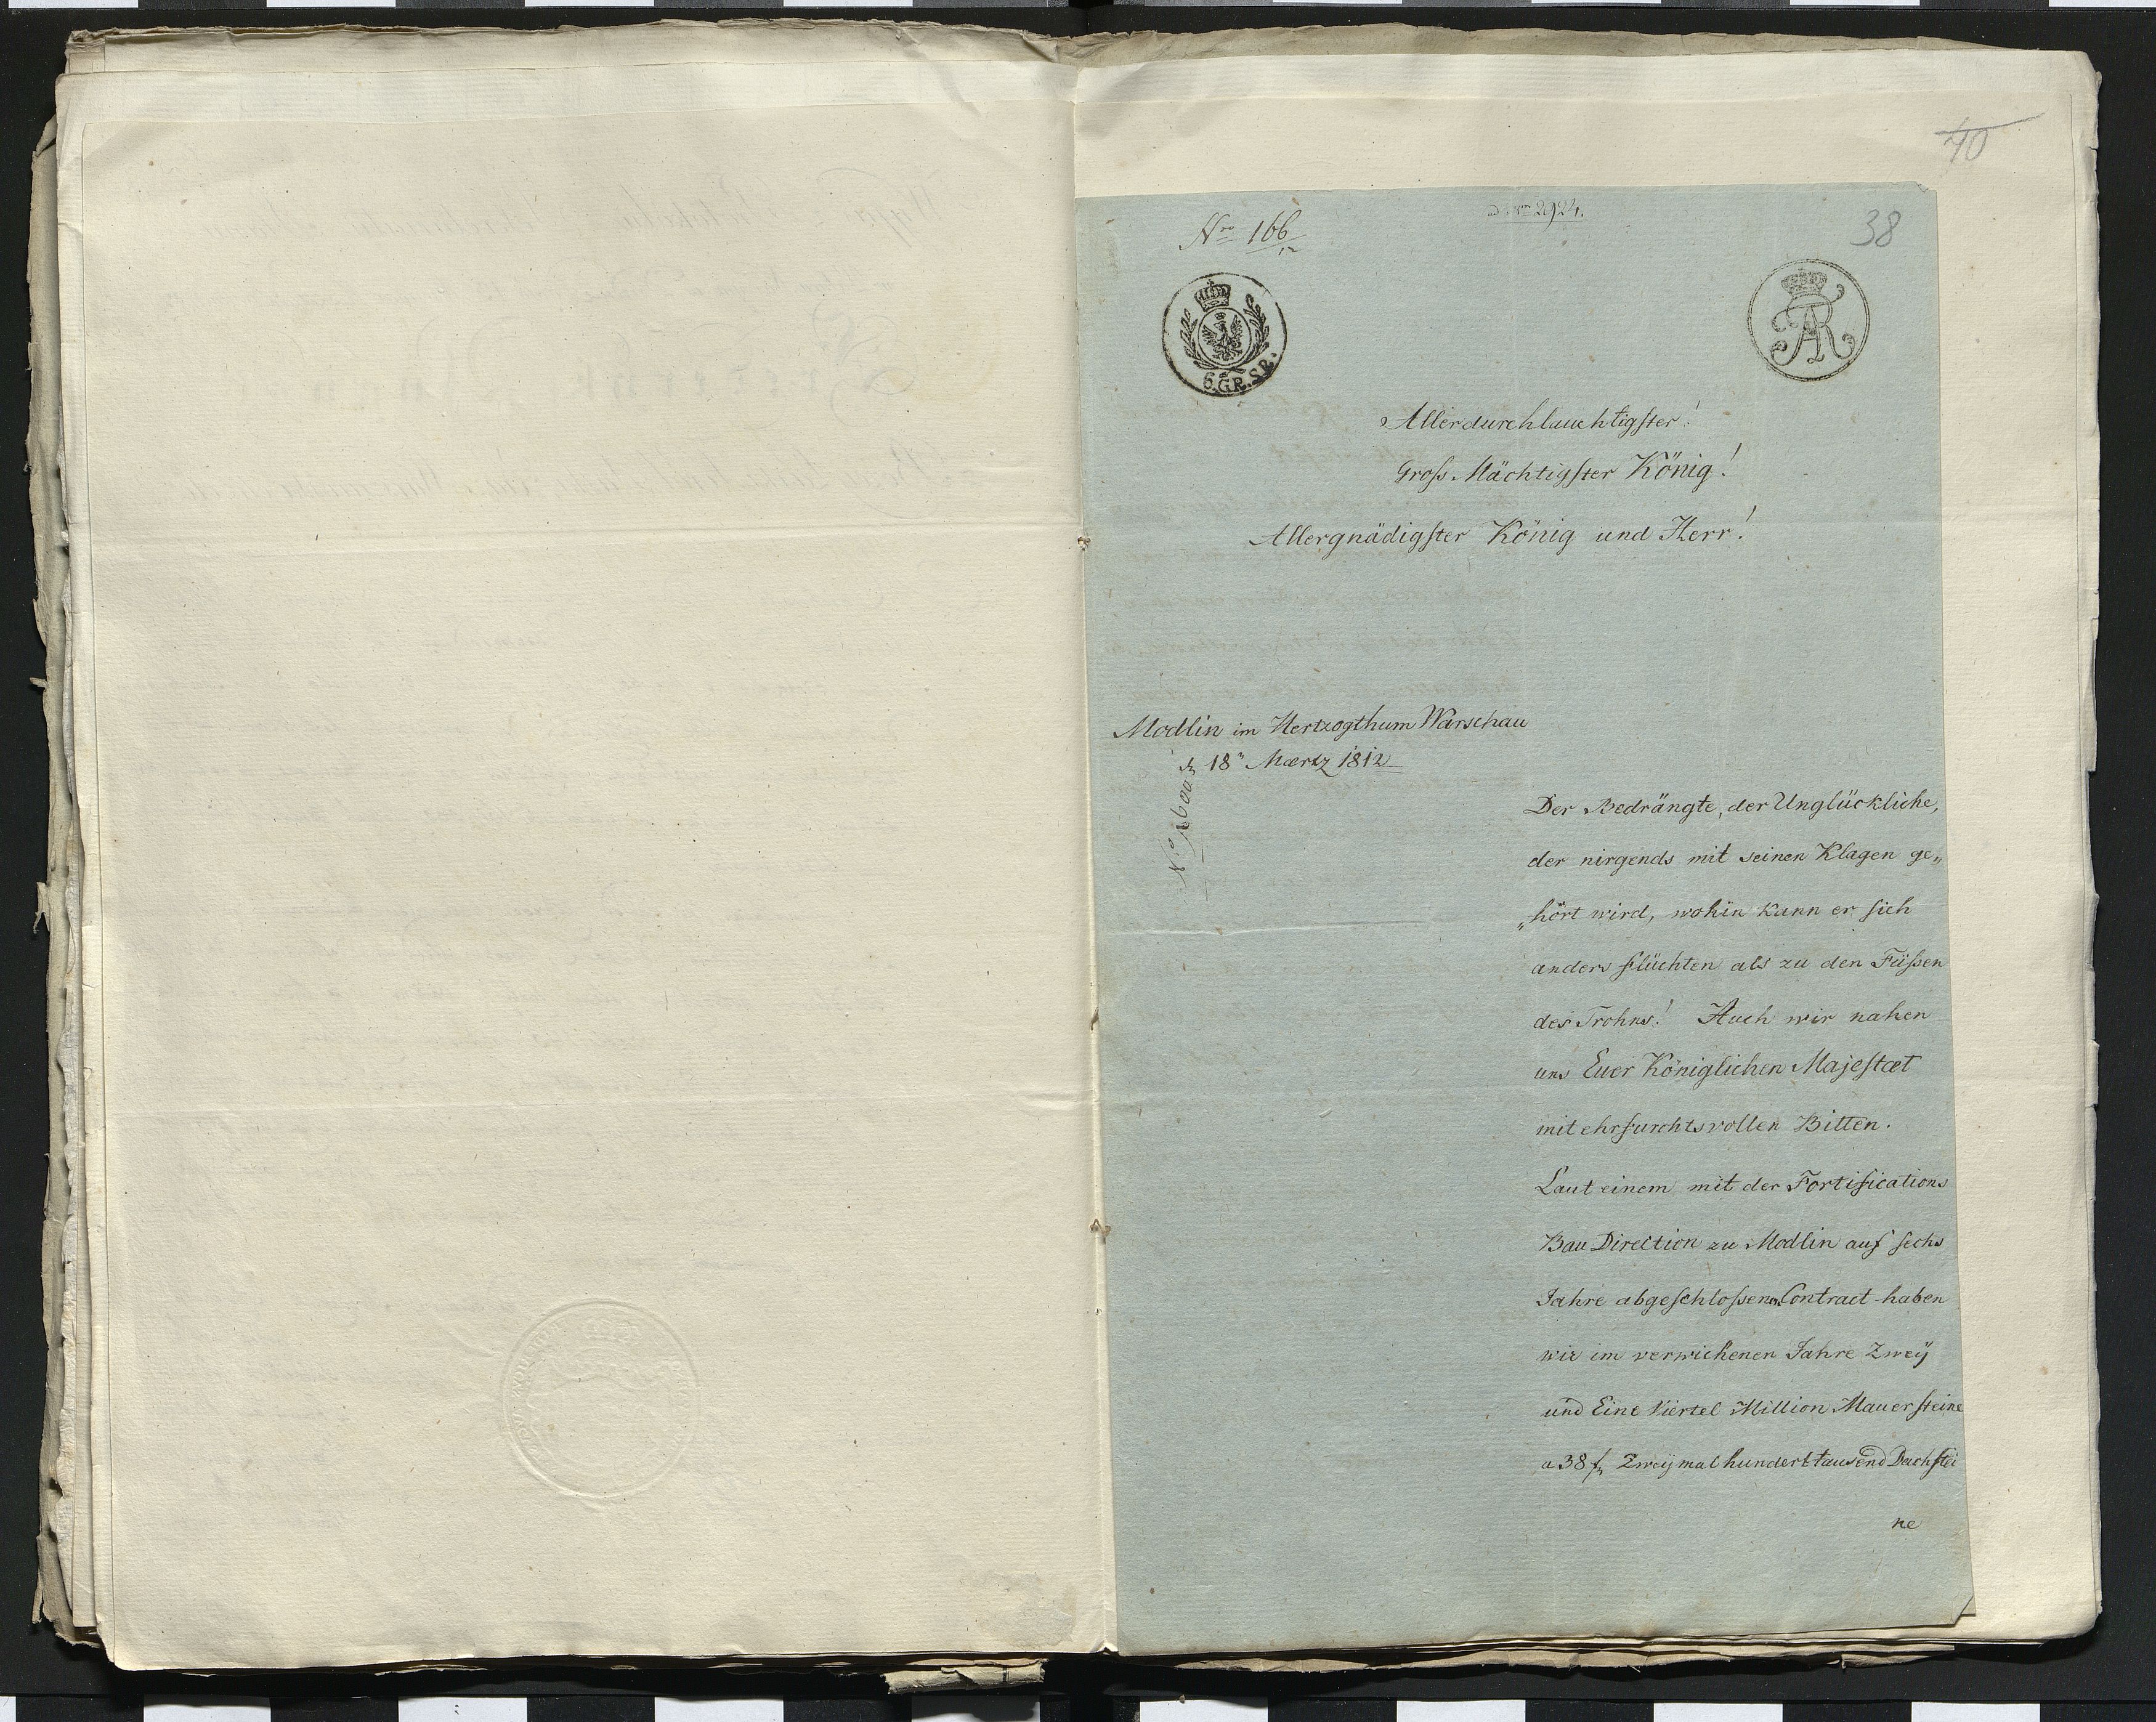 70
Nro 166
ad Nrm 2924.
38
6.GR.SR.
AR
Allerdurchlauchtigster!
Gross Mächtigster König!
Allergnädigster König und Herr!
Modlin im Hertzogthum Warschau
d. 18n Maertz 1812
Der Bedrängte, der Unglückliche,
der nirgends mit seinen Klagen ge„
„hört wird, wohin kann er sich
anders flüchten als zu den Füßen
des Trohns! Auch wir nahen
uns Euer Königlichen Majestaet
mit ehrfurchtsvollen Bitten.
Laut einem mit der Fortifications
Bau Direction zu Modlin auf sechs
Jahre abgeschloßenen Contract haben
wir im verwichenen Jahre Zweÿ
und Eine Viertel Million Mauersteine
a 38 f. Zweÿmalhunderttausend Dachstei
ne